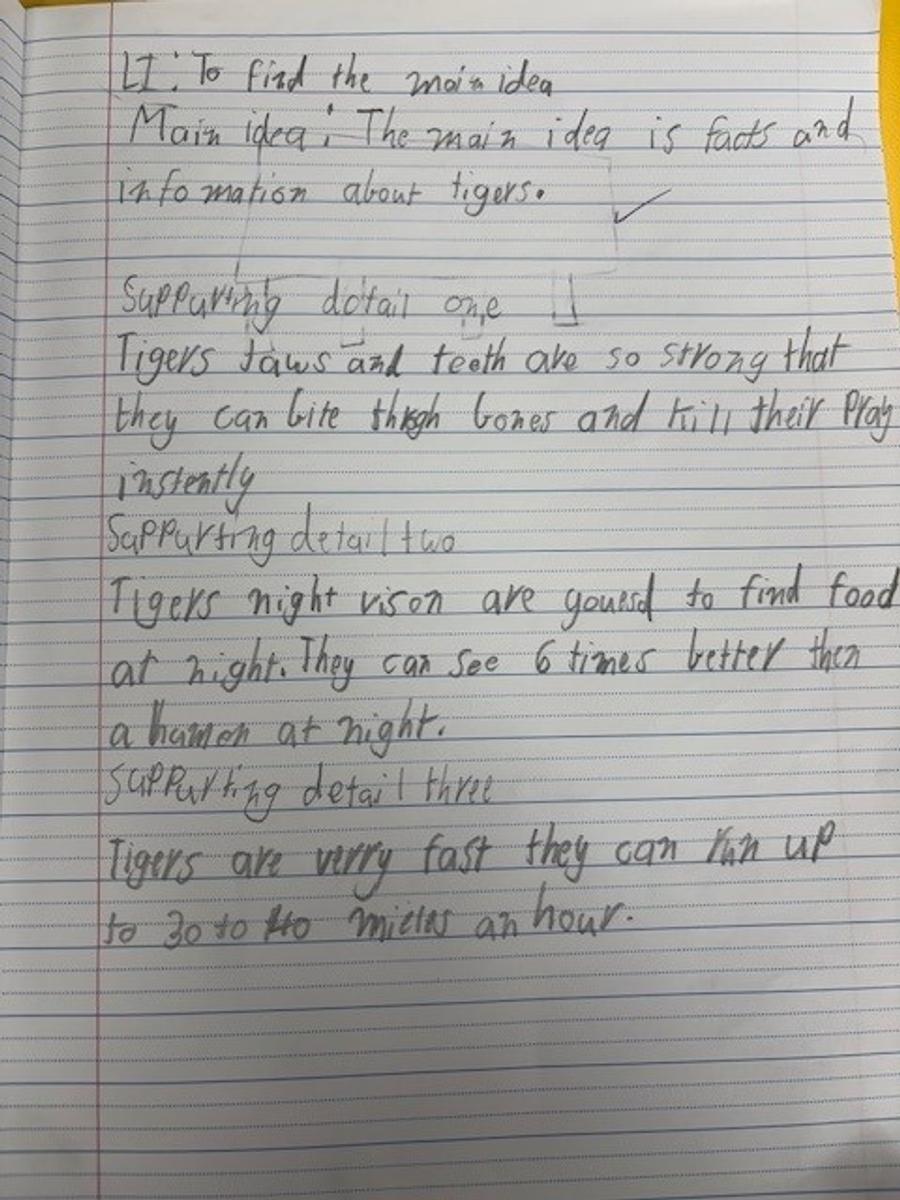 LI: To find the main idea
Main idea: The main idea is facts and
infomation about tigers.
Suppurting detail one
Tigers Jaws and teeth are so strong that
they can bite thrgh bones and kill their Pray
instently
Suppurting detail two
Tigers night vison are to find food
at night. They can see 6 times better then
a humen at night.
Suppurting detail three
Tigers are verry fast they can run up
to 30 to 40 an hour.